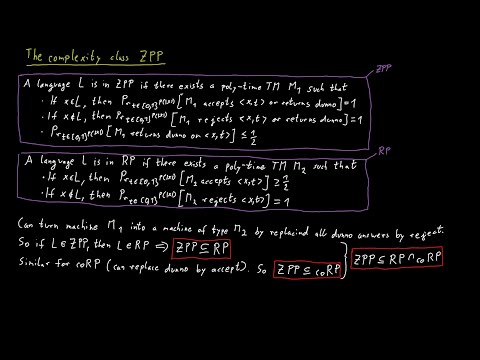 The complexity class ZPP
ZPP
A language L is in ZPP if there exists a poly-time TM M₁ such that
· If x∈L, then Pr_{t∈{0,1}^{p(|x|)}} [M₁ accepts <x,t> or returns dunno] = 1
· If x∉L, then Pr_{t∈{0,1}^{p(|x|)}} [M₁ rejects <x,t> or returns dunno] = 1
· Pr_{t∈{0,1}^{p(|x|)}} [M₁ returns dunno on <x,t>] ≤ 1/2
RP
A language L is in RP if there exists a poly-time TM M₂ such that
· If x∈L, then Pr_{t∈{0,1}^{p(|x|)}} [M₂ accepts <x,t>] ≥ 1/2
· If x∉L, then Pr_{t∈{0,1}^{p(|x|)}} [M₂ rejects <x,t>] = 1
Can turn machine M₁ into a machine of type M₂ by replacind all dunno answers by reject.
So if L∈ZPP, then L∈RP ⇒ ZPP ⊆ RP
Similar for coRP (can replace dunno by accept). So ZPP ⊆ coRP
ZPP ⊆ RP ∩ coRP